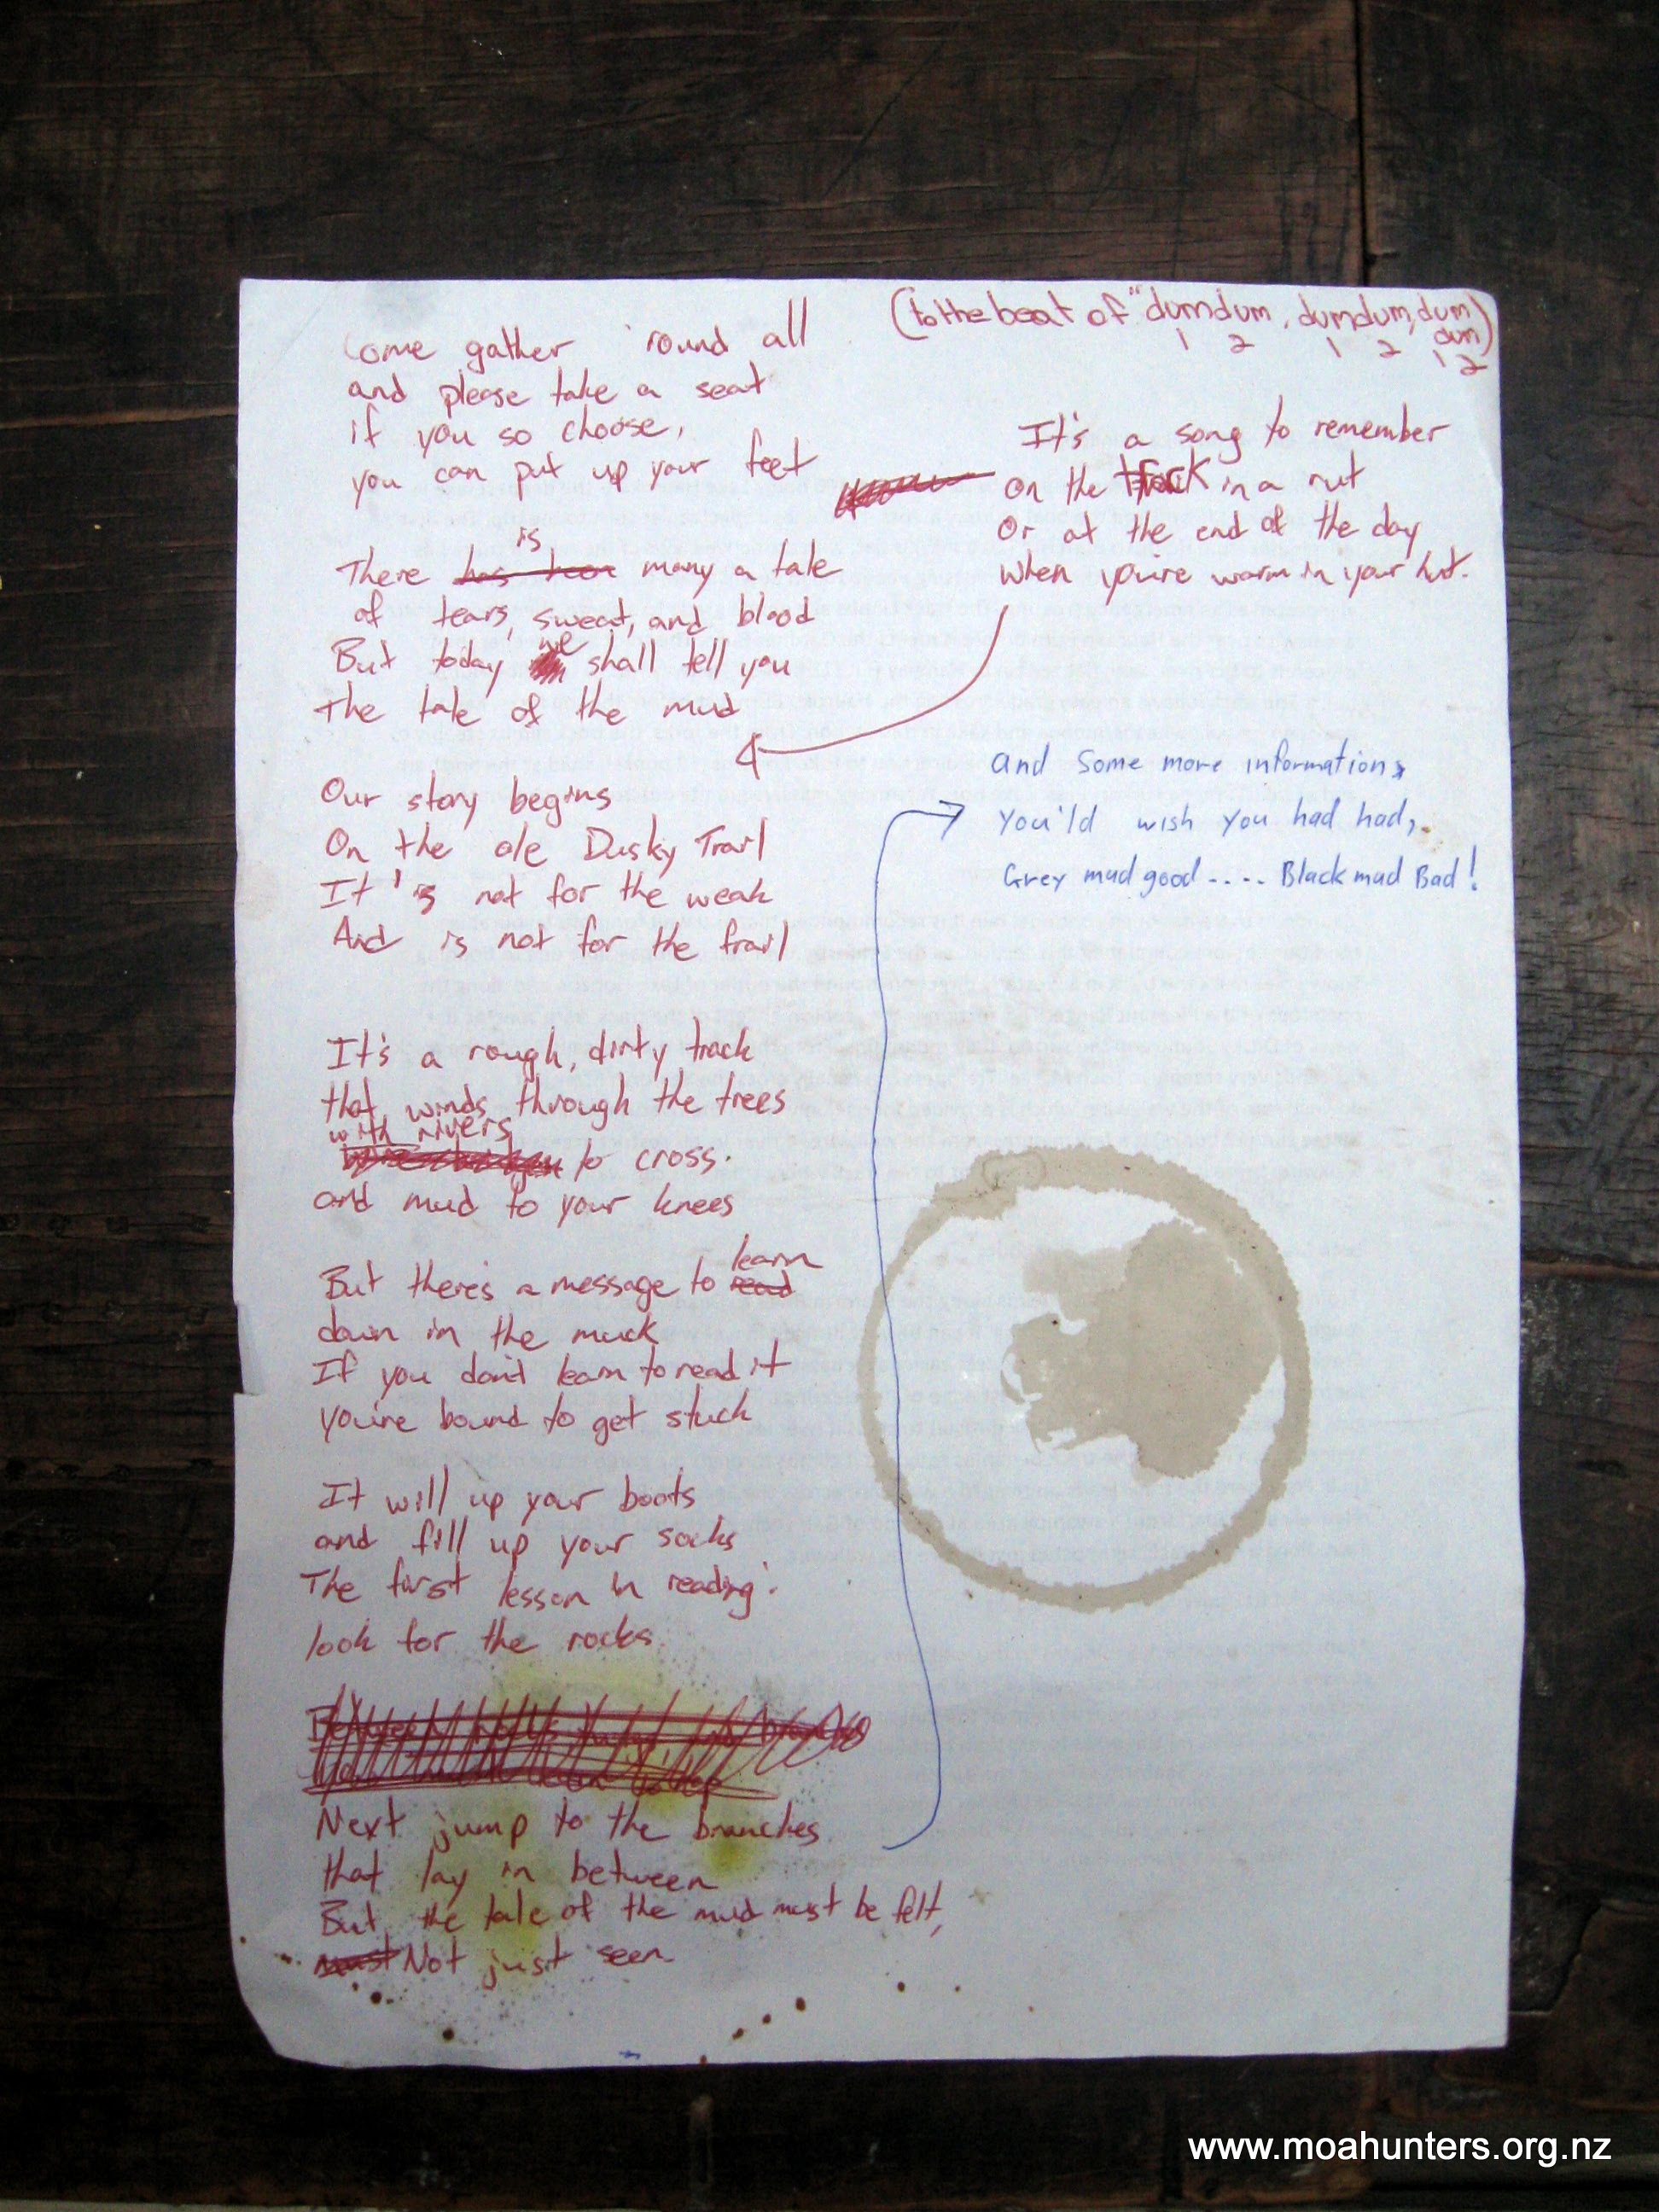 (to the beat of "dumdum, dumdum, dum
dum)
1 2 1 2 1 2
Come gather 'round all
and please take a seat
if you so choose,
you can put up your feet
is
There has been many a tale
of tears, sweat, and blood
But today we shall tell you
the tale of the mud
It's a song to remember
On the track in a rut
Or at the end of the day
when you're warm in your hut.
Our story begins
On the ole Dusky Trail
It's not for the weak
And is not for the frail
It's a rough, dirty track
that winds through the trees
with rivers
to cross.
and mud to your knees
learn
But there's a message to read
down in the muck
If you don't learn to read it
you're bound to get stuck
It will up your boots
and fill up your socks
The first lesson in reading:
look for the rocks
Next jump to the branches
that lay in between
But the tale of the mud must be felt,
must Not just seen.
and some more information,
You'ld wish you had had,
Grey mud good .... Black mud Bad!
www.moahunters.org.nz